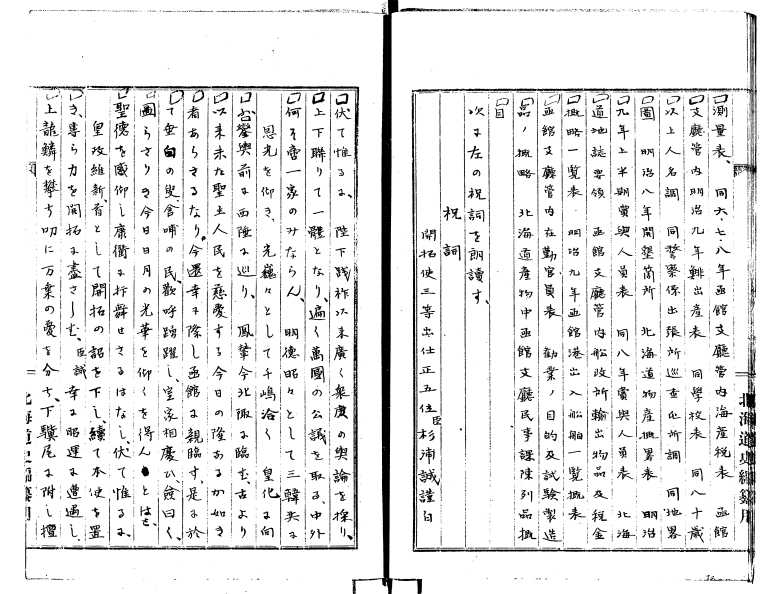 測量表、同六七・八年函館支廳管内海産税表 函館
支廳管内明治九年輸出産表 同學校表 同八十歳
以上人名調 同警察係出張所巡査屯所調 同地畧
圖 明治八年開墾箇所 北海道物産概畧表 明治
九年上半期賞與人員表 同八年賞與人員表 北海
道地誌要領 函館支廳管内船改所輸出物品及税金
概略一覧表 明治九年函館港出入船舶一覧概表
函館支廳管内在勤官員表 勧業ノ目的及試験製造
品ノ概略 北海道産物中函館支廳民事課陳列品概
目
次に左の祝詞を朗讀す、
祝詞
開拓使三等出仕正五位臣杉浦誠謹白
伏て惟るに、陛下践祚以来廣く衆庶の輿論を採り、
上下聯りて一體となり、遍く萬國の公議を取る、中外
何そ啻一家のみならん、明徳昭々として三韓
恩光を仰き、光巍々として千嶋洽く 皇化に向
ふ、鑾輿前に西陸に巡り、鳳輦今北陬に臨む、古より
以来未た聖主人民を慈愛する今日の隆あるか如き
者あらさるなり、今還幸に際し函館に親臨す、是に於
て垂白の叟、含哺の民、歓呼踊躍し、皇家相慶ひ僉曰く、
圖らさりき今日日月の光華を仰くを得んとはと、
聖徳を感仰し康衢に抃舞せさるはなし、伏て惟るに、
皇政維新、首として開拓の詔を下し、續て本使を置
き、専ら力を開拓に盡さしむ、臣誠幸に昭運に遭遇し、
上龍鱗を攀ち叨に万葉の愛を分ち、下驥尾に附し擅
北海道史編纂用
北海道史編纂用